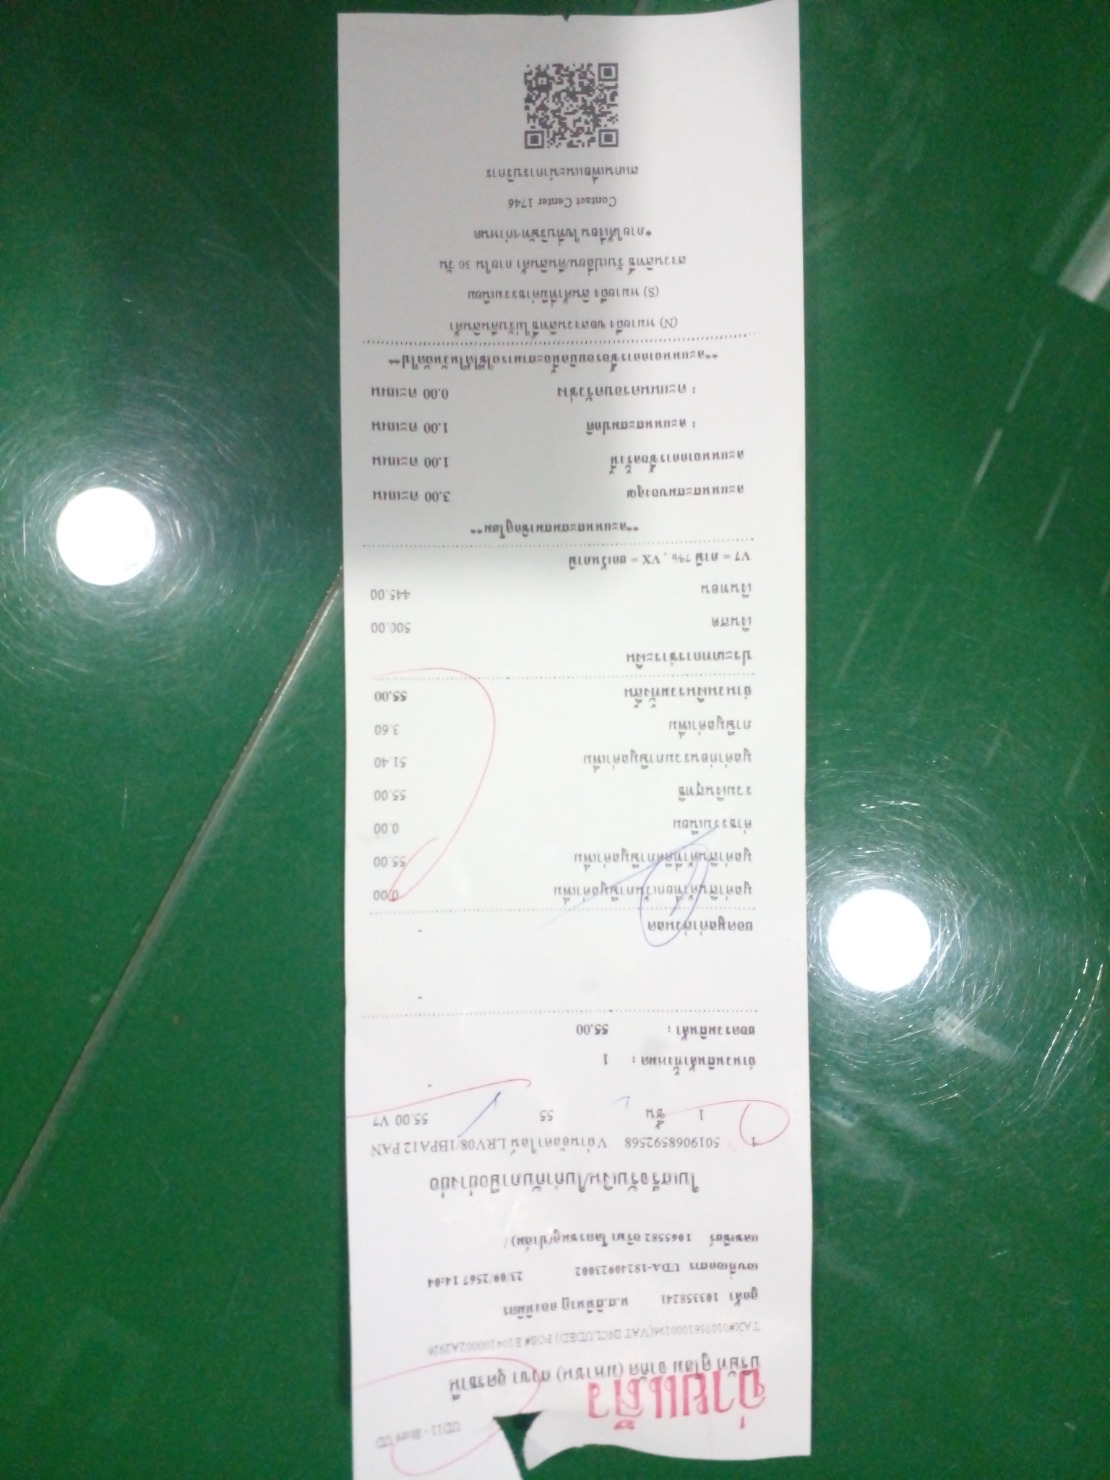 UD11 - Store UD
จ่ายแล้ว
บริษัท ดูโฮม จำกัด (มหาชน) สาขา อุดรธานี
TAX#0107561000196(VAT INCLUDED) POS# E104100002A2926
ลูกค้า 103358241
เลขที่เอกสาร UDA-18240923002 23/09/2567 14:04
แคชเชียร์ 1065582
ใบเสร็จรับเงิน/ใบกำกับภาษีอย่างย่อ
1 5019068592568 LRV08/1BPA12 PAN
1 ชิ้น 55 55.00 V7
จำนวนสินค้าทั้งหมด : 1
ยอดรวมสินค้า : 55.00
ยอดมูลค่าส่วนลด
มูลค่าสินค้าที่ยกเว้นภาษีมูลค่าเพิ่ม 0.00
มูลค่าสินค้าที่คิดภาษีมูลค่าเพิ่ม 55.00
ค่าธรรมเนียม 0.00
รวมเงินสุทธิ 55.00
มูลค่าก่อนรวมภาษีมูลค่าเพิ่ม 51.40
ภาษีมูลค่าเพิ่ม 3.60
จำนวนเงินรวมทั้งสิ้น 55.00
ประเภทการชำระเงิน
เงินสด 500.00
เงินทอน 445.00
V7 = ภาษี 7% , VX = ยกเว้นภาษี
**คะแนนสะสมสมาชิกดูโฮม**
คะแนนสะสมของคุณ 3.00 คะแนน
คะแนนจากการซื้อครั้งนี้ 1.00 คะแนน
: คะแนนสะสมปกติ 1.00 คะแนน
: คะแนนครอบครัวช่าง 0.00 คะแนน
**คะแนนจากการซื้อรอบบิลนี้จะสามารถใช้ได้ในวันถัดไป**
(N) หมายถึง ขอสงวนสิทธิ์ไม่รับคืนสินค้า
(S) หมายถึง สินค้าที่มีค่าธรรมเนียม
สงวนสิทธิ์ รับเปลี่ยน/คืนสินค้า ภายใน 30 วัน
*ภายใต้เงื่อนไขที่บริษัทฯกำหนด
Contact Center 1746
สแกนเพื่อแนะนำการบริการ